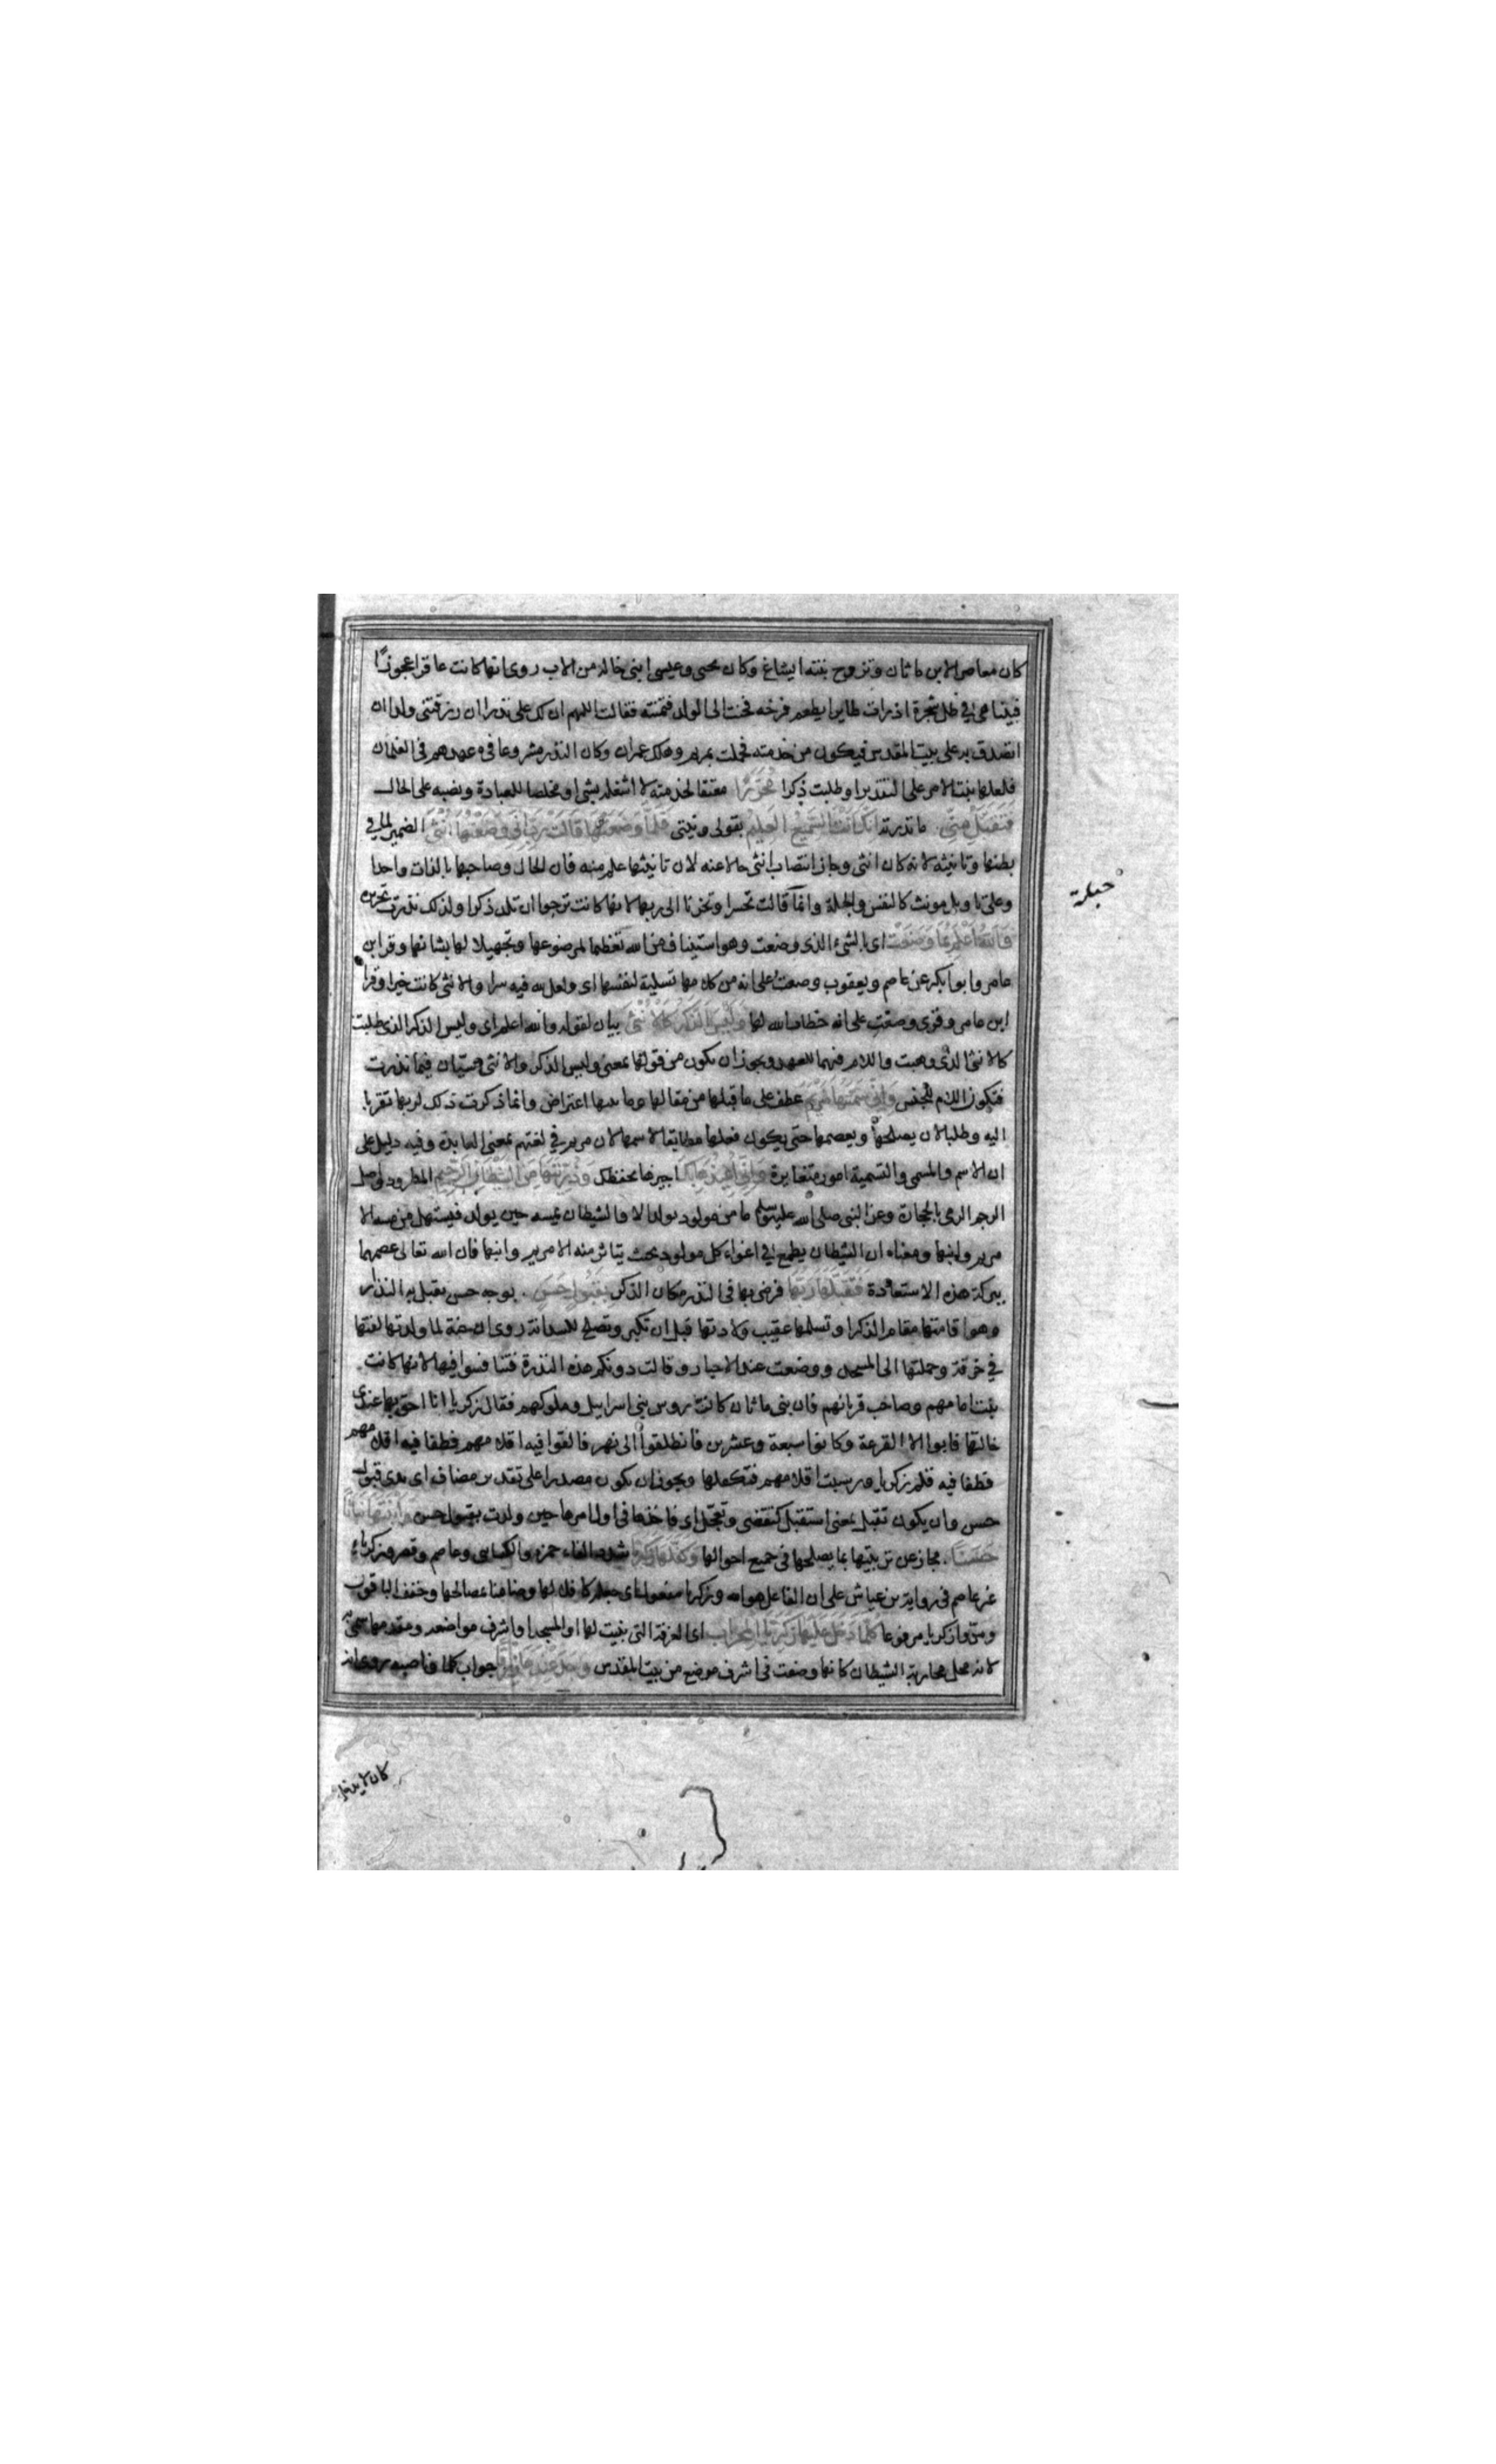 كان معاصرا لابن ماثان وتزوج بنته ايشاع وكان يحيى وعيسى ابنى خالة من الاب روى انها كانت عاقرا عجوزا
فبينا هى في ظل شجرة اذ رات طايرا يطعم فرخه فحنت الى الولد فتمنته فقالت اللهم ان لك على نذرا ان رزقتنى ولدا ان
اتصدق به على بيت المقدس فيكون من خدمته فحملت بمريم وهلك عمران وكان النذر مشروعا فى عهدهم فى الغلمان
فلعلها بنت الامر على التقدير او طلبت ذكرا مُحَرَّرًا معتقا لخدمته لا اشغله بشى او مخلصا للعبادة ونصبه على الحال
فَتَقَبَّلْ مِنِّى ما نذرته اِنَّكَ اَنْتَ السَّمِيعُ الْعَلِيمُ بقولى ونيتى فَلَمَّا وَضَعَتْهَا قَالَتْ رَبِّ اِنِّى وَضَعْتُهَا اُنْثٰى الضمير لما في
بطنها وتانيثه لانه كان انثى وجاز انتصاب انثى حالا عنه لان تانيثها علم منه فان الحال وصاحبها بالذات واحد
وعلى تاويل مونث كالنفس والجبلة وانما قالت تحسرا وتحزنا الى ربها لانها كانت ترجوا ان تلد ذكرا ولذلك نذرت تحريره
وَاللّٰهُ اَعْلَمُ بِمَا وَضَعَتْ اى بالشئ الذى وضعت وهو استيناف من الله تعظيما لموضوعها وتجهيلا لها بشانها وقرا ابن
عامر وابو ابكر عن عاصم ويعقوب وضعت على انه من كلامها تسلية لنفسها اى ولعل لله فيه سرا والانثى كانت خيرا وقرا
ابن عامر وقرى وضعت على انه خطاب الله لها وَلَيْسَ الذَّكَرُ كَالْاُنْثٰى بيان لقوله والله اعلم اى وليس الذكر الذى طلبت
كالانثى الذى وهبت واللام فيهما للعهد ويجوز ان يكون من قولها بمعنى وليس الذكر والانثى سيان فيما نذرت
فتكون اللام للجنس وَاِنِّى سَمَّيْتُهَا مَرْيَمَ عطف على ما قبلها من مقالها وما بينها اعتراض وانما ذكرت ذلك لربها تقربا
اليه وطلبا لان يصلحها ويعصمها حتى يكون فعلها مطابقا لاسمها لان مريم في لغتهم بمعنى العابدة وفيه دليل على
ان الاسم والمسمى والتسمية امور متغايرة وَاِنِّى اُعِيذُهَا بِكَ اجيرها بحفظك وَذُرِّيَّتَهَا مِنَ الشَّيْطَانِ الرَّجِيمِ المطرود واصل
الرجم الرمى بالحجارة وعن النبى صلى الله عليه وسلم ما من مولود يولد الا والشيطان يمسه حين يولد فيستهل من مسه الا
مريم وابنها ومعناه ان الشيطان يطمع في اغواء كل مولود بحيث يتاثر منه الا مريم وابنها فان الله تعالى عصمهما
ببركة هذه الاستعاذة فَتَقَبَّلَهَا رَبُّهَا فرضى بها فى النذر مكان الذكر بِقَبُولٍ حَسَنٍ بوجه حسن يقبل به النذاير
وهو اقامتها مقام الذكر او تسلمها عقيب ولادتها قبل ان تكبر وتصلح للسدانة روى ان حنة لما ولدتها لفتها
في خرقة وحملتها الى المسجد ووضعت عند الاحبار وقالت دونكم هذه النذرة فتنافسوا فيها لانها كانت
بنت امامهم وصاحب قربانهم فان بنى ماثان كانت روس بنى اسراييل وملوكهم فقال زكريا انا احق بها عندى
خالتها فابوا الا القرعة وكانوا سبعة وعشرين فانطلقوا الى نهر فالقوا فيه اقلامهم فطفا فيه اقلامهم
فطفا فيه قلم زكريا ورسبت اقلامهم فتكفلها ويجوز ان يكون مصدرا على تقدير مضاف اى بذى قبول
حسن وان يكون تقبل بمعنى استقبل كتقضى وتعجل اى فاخذها فى اول امرها حين ولدت بقبول حسن وَاَنْبَتَهَا نَبَاتًا
حَسَنًا مجاز عن تربيتها بما يصلحها فى جميع احوالها وَكَفَّلَهَا زَكَرِيَّا شدد الفاء حمزه والكساىى وعاصم وقصروا زكرياء
غير عاصم فى رواية بن عياش على ان الفاعل هو الله وزكريا مفعول اى جعله كافلا لها وضامنا بمصالحها وخفف الباقون
ومدوا زكريا مرفوعا كُلَّمَا دَخَلَ عَلَيْهَا زَكَرِيَّا الْمِحْرَابَ اى الغرفة التى بنيت لها او المسجد او اشرف مواضعه ومقدمها سمى به
لانه محل محاربة الشيطان كانها وضعت فى اشرف موضع من بيت المقدس وَجَدَ عِنْدَهَا رِزْقًا جواب كلما وناصبه روى انه
جبلة
كان لا يدخل